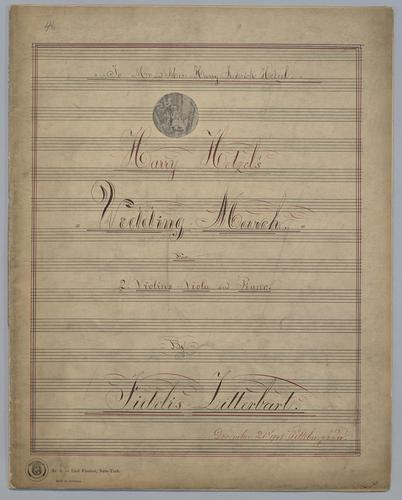 46
To Mr. & Mrs. Harry Hetzel.
Harry Hetzel's
"Wedding March."
For
2 Violins Viola and Piano.
By
Fidelis Zitterbart.
December 21st Pittsburgh Pa.
No. 6. — Carl Fischer, New-York.